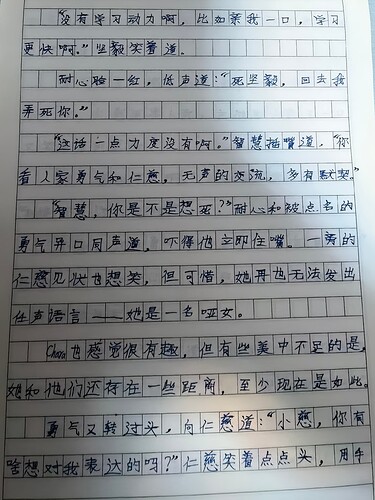 "没有学习动力啊，比如亲我一口，学习
更快啊。"坚毅笑着道。
耐心脸一红，低声道："死坚毅，回去我
弄死你。"
"这话一点力度没有啊。"智慧插嘴道，"你
看人家勇气和仁慈，无声的交流，多有默契。"
"智慧，你是不是想死？"耐心和被点名的
勇气异口同声道，吓得他立即住嘴。一旁的
仁慈见状也想笑，但可惜，她再也无法发出
任声语言——她是一名哑女。
Chara也感觉很有趣，但有些美中不足的是，
她和他们还存在一些距离，至少现在是如此。
勇气又转过头，向仁慈道："小慈，你有
啥想对我表达的吗？"仁慈笑着点点头，用手